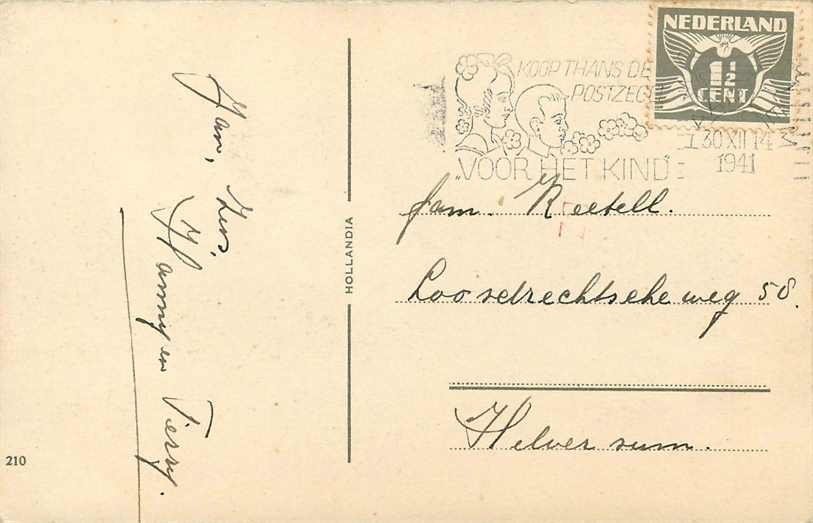 NEDERLAND
1½
CENT
KOOP THANS DE
POSTZEG
„VOOR HET KIND"
30 XII 14
1941
Jan,
Hannij en
HOLLANDIA
fam. Reetell.
Loosdrechtscheweg 58.
Helversum.
210